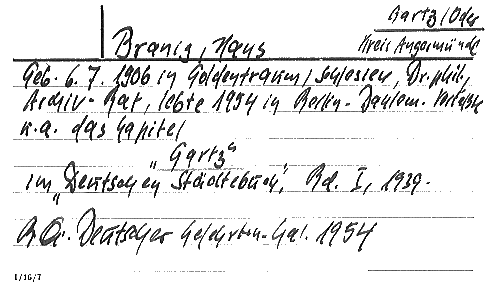 Gartz/Oder
Branig, Hans Kreis Angermünde
Geb. 6. 7. 1906 in Goldentraum/Schlesien, Dr. phil,
Archiv-Rat, lebte 1954 in Berlin-Dahlem. Verfaßte
u.a. das Kapitel
"Gartz"
im "Deutschen Städtebuch", Bd. I, 1939.
Deutscher Gelehrten-Kal. 1954
I/16/7